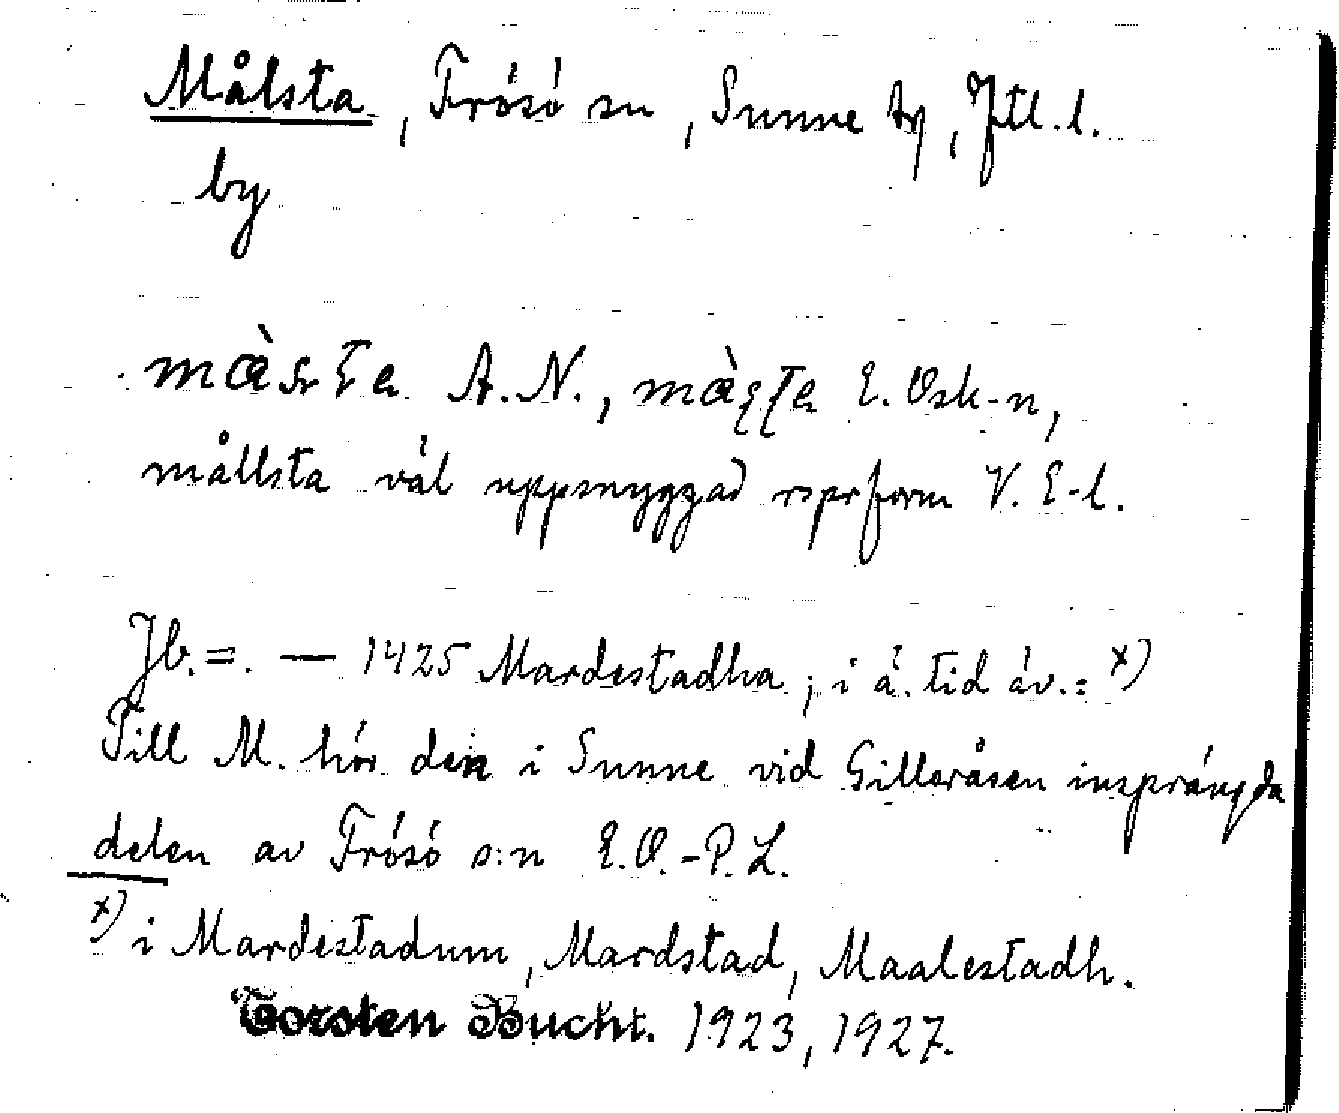 Målsta, Frösö sn, Sunne tg, Jtl. l.
by
A.N., E. Osk-n,
mållsta väl uppsnyggad rsprform V. E-l.
Jb. =. — 1425 Mardestadha; i ä. tid äv.: x)
Till M. hör den i Sunne vid Gilleråsen insprängda
delen av Frösö s:n E.O.-P.L.
x) i Mardestadum, Mardstad, Maalestadh.
Torsten Bucht. 1923, 1927.